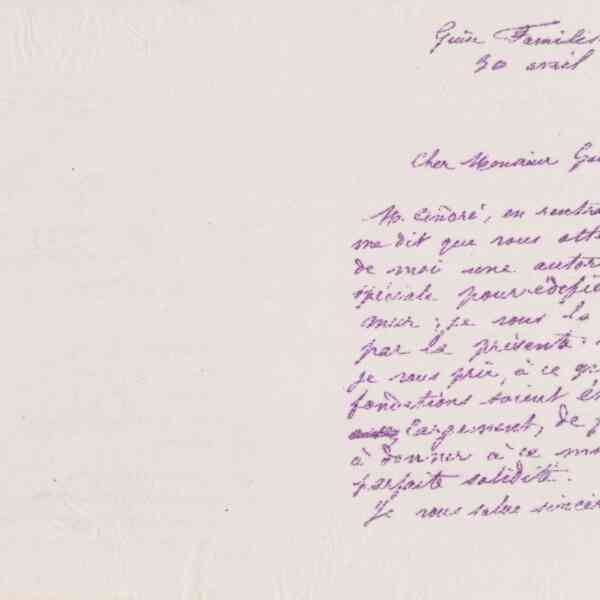 Guise Familis
30 avril
Cher Monsieur Go
M. André, en rentra
me dit que vous atte
de moi une autor
spéciale pour édifie
mur ; je vous la
par la présente.
Je vous prie, à ce q
fondations soient é
largement, de
à donner à ce m
parfaite solidité.
Je vous salue sincèr